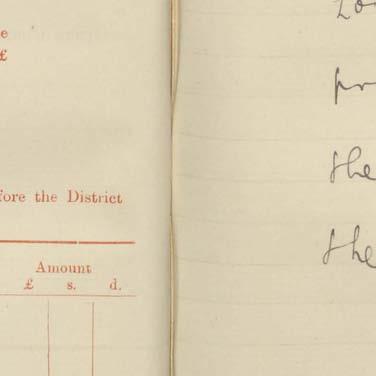 e
£
fore the District
Amount
£ s. d.
the
the